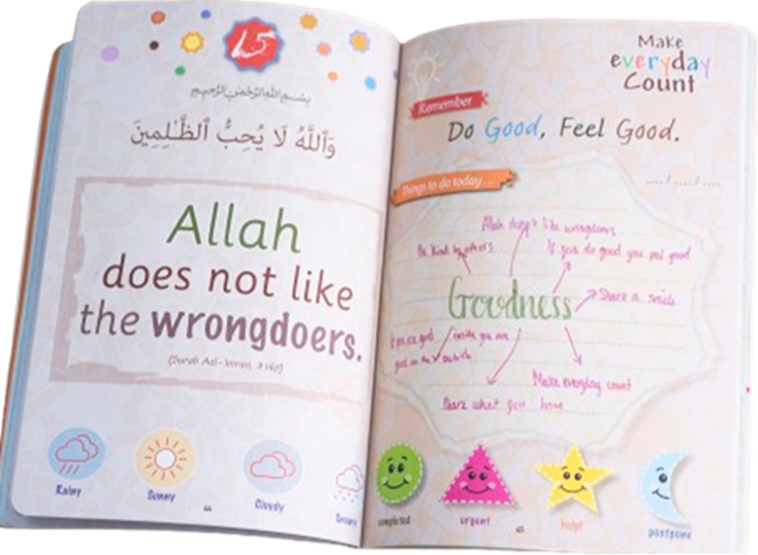 15
بِسْمِ اللهِ الرَّحْمٰنِ الرَّحِيْمِ
وَٱللَّهُ لَا يُحِبُّ ٱلظَّـٰلِمِينَ
Allah
does not like
the wrongdoers.
(Surah Aal-Imran,
Rainy
Sunny
Cloudy
Make
everyday
Count
Remember
Do Good, Feel Good.
Things to do today...
..../..../....
Allah doesn't like wrongdoers
Be kind to others
If you do good you get good
Goodness
Share a smile
If you are good
inside you are
good on the outside
Make everyday count
Share what you have
completed
urgent
help!
postpone